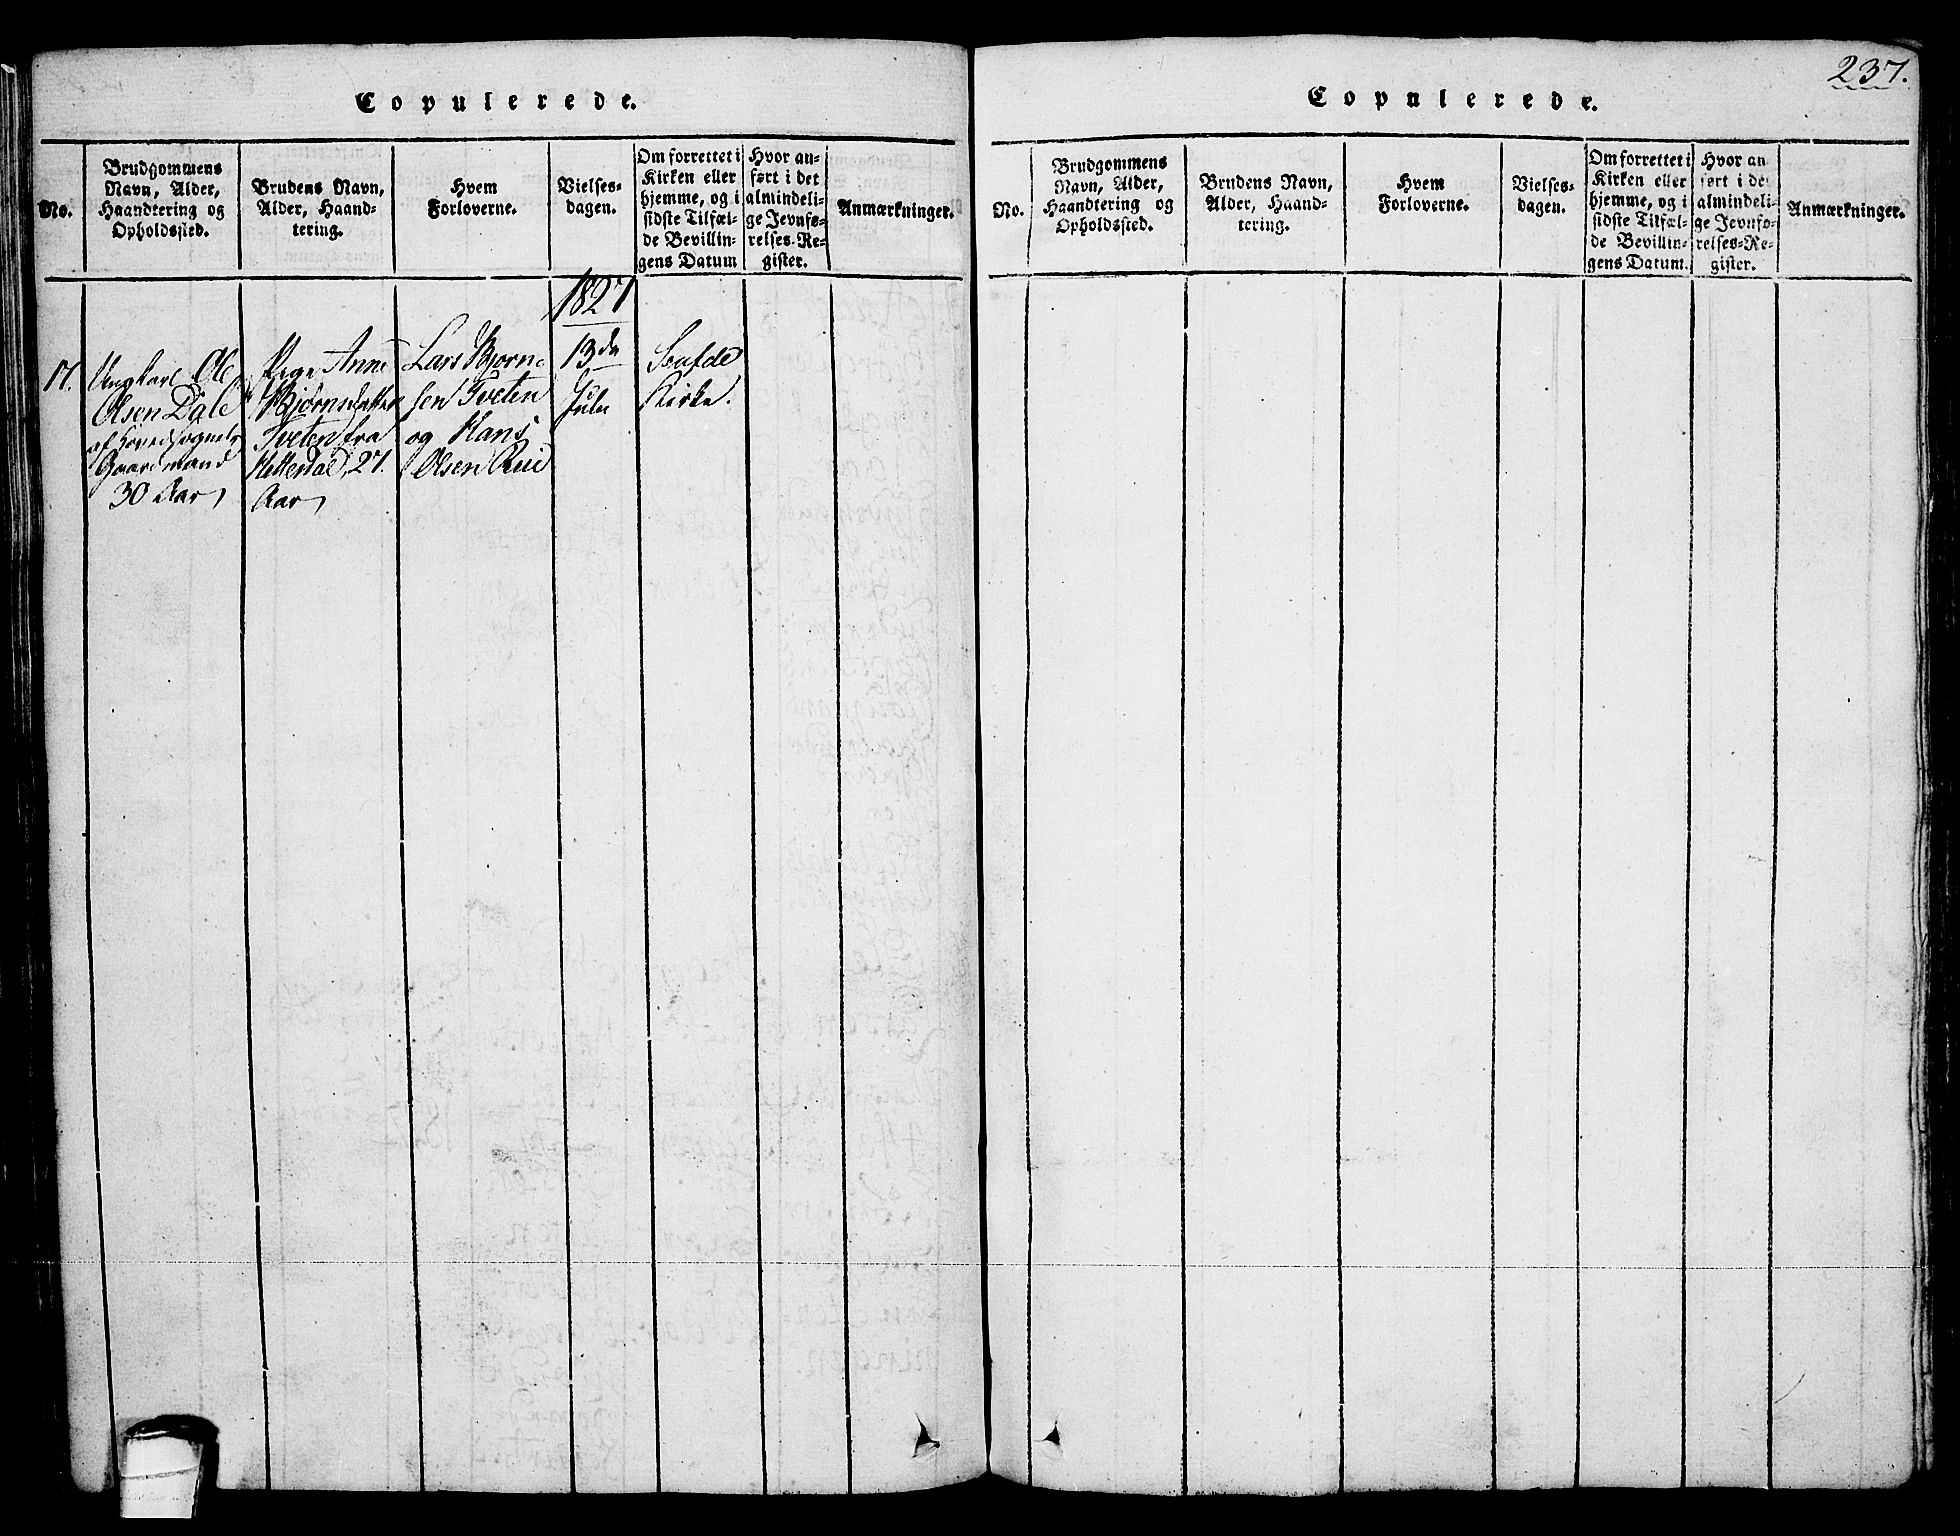 Copulerede.
No.
Brudgommens
Navn, Alder,
Haandtering og
Opholdssted.
Brudens Navn,
Alder, Haand-
tering.
Hvem
Forloverne.
Vielses-
dagen.
Om forrettet i
Kirken eller
hjemme, og i
sidste Tilfæl-
de Bevillin-
gens Datum
Hvor an-
ført i det
almindeli-
ge Jevnfø-
relses-Re-
gister.
Anmærkninger.
17.
Ungkarl Ole
Olsen Dale
af Hovedsognet
Gaardmand
30 Aar
Pige Anne
Bjørnsdatter
Tveten fra
Hitterdal, 27.
Aar
Lars Bjørn-
sen Tveten
og Hans
Olsen Rui
1827
13de
Julii
Saufde
Kirke.
237.
Copulerede.
No.
Brudgommens
Navn, Alder,
Haandtering og
Opholdssted.
Brudens Navn,
Alder, Haand-
tering.
Hvem
Forloverne.
Vielses-
dagen.
Om forrettet i
Kirken eller
hjemme, og i
sidste Tilfæl-
de Bevillin-
gens Datum.
Hvor an
ført i det
almindeli-
ge Jevnfø-
relses-Re-
gister.
Anmærkninger.